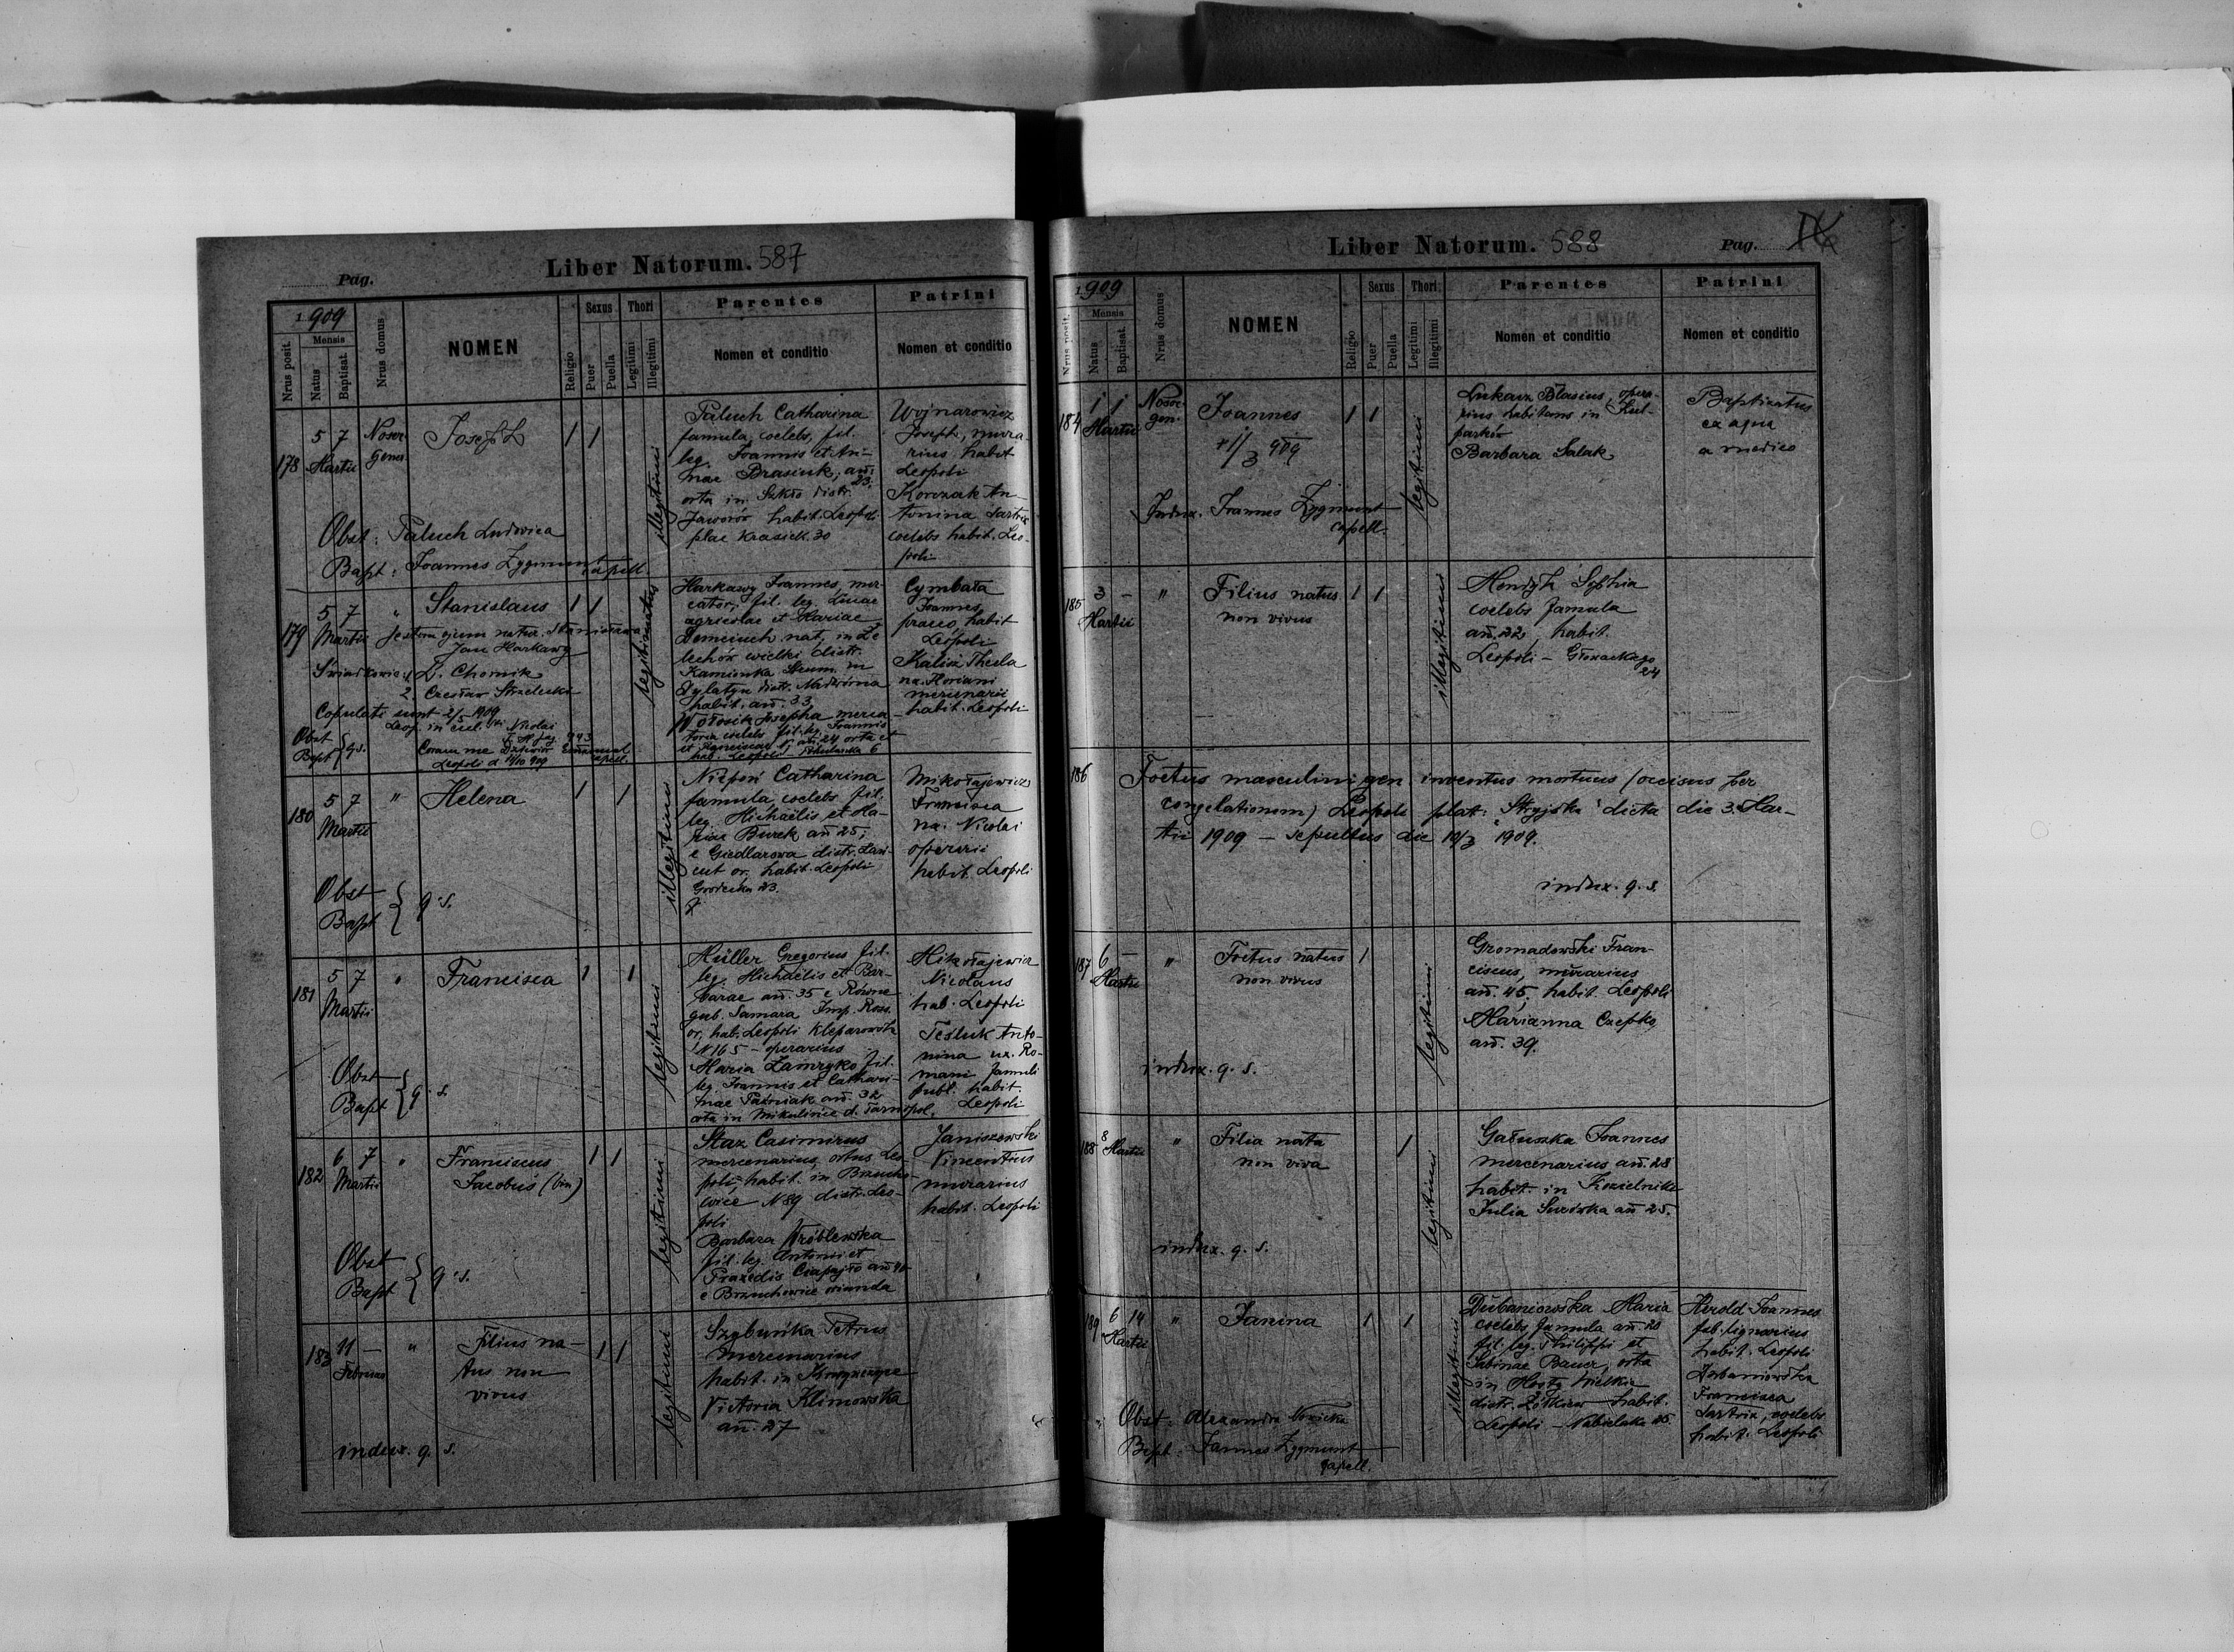 Pag.
Liber Natorum. 587
1909
Mensis
Nrus posit.
Natus
Baptisat.
Nrus domus
NOMEN
Religio
Sexus
Puer
Puella
Thori
Legitimi
Illegitimi
Parentes
Nomen et conditio
Patrini
Nomen et conditio
178
5 7
Martii
Nosoc
gener
Joseph
1 1
illegitimi
Paluch Catharina
famula, coelebs, fil.
leg. Joannis et An-
nae Brasiuk, añ.
23.
orta in Szkło distr.
Jaworów habit. Leopoli
plac Krasick. 30
Wojnarowicz
Joseph, mura-
rius habit
Leopoli
Korczak An-
tonina sartrix
coelebs habit. Leo-
poli
Obst: Paluch Ludovica
Bapt: Joannes Zygmunt capell.
179
5 7
Martii
"
Stanislaus
1 1
legitimatus
Jestem ojcem natur. Stanisława
Jan Harkawy
Świadkowie: 1 Z. Chomik
2 Czesław Strzelecki
Copulati sunt 2/5 1909
Leop. in eccl. Nicolai
Coram me
Leopoli d 10 909
capell.
Obst
Bapt } q.s.
Harkawy Joannes, mer-
cator, fil. leg. Lucae
agricolae et Mariae
Demciuch nat. in Że
lechów wielki distr.
Kamionka Strum. in
Dylatyn distr. Nadwórna
habit. añ. 33
Wołosik Josepha merca-
torea coelebs fil. leg. Joannis
et Agnesiae añ. 24 orta et
hab. Leopoli
Cymbała
Joannes,
praeco, habit
Leopoli
Kalisz Thecla
ux. Floriani
mercenarii
habit. Leopoli
180
5 7
Martii
"
Helena
1 1
illegitimi
Niepoń Catharina
famula coelebs fil.
leg. Michaelis et Ma-
riae Burek añ 25;
e Giedlarowa distr. Łań-
cut or. habit. Leopoli
Gródecka 23.
Mikołajewicz
Francisca
ux. Nicolai
operarii
habit. Leopoli
Obst
Bapt } q.s.
181
5 7
Martii
"
Francisca
1 1
legitimi
Müller Gregorius fil.
leg. Michaëlis et Bar-
barae añ. 35 e Równe
gub. Samara Imp. Ross.
or. hab. Leopoli Kleparowska
N 165 - operarius
Maria Lamryko fil.
leg. Joannis et Cathari-
nae Paśniak añ. 32
orta in Mikulińce d. Tarnopol.
Mikołajewicz
Nicolaus
hab. Leopoli
Tesluk Anto-
nina ux. Ro-
mani famuli
publ. habit.
Leopoli
Obst
Bapt } q. s.
182
6 7
Martii
"
Franciscus
Jacobus (bin)
1 1
legitimi
Stax Casimirus
mercenarius, ortus Leo-
poli, habit. in Brzucho-
wice N 89 distr. Leo-
poli
Barbara Wróblewska
fil. leg. Antonii et
Praxedis Czapajło añ 40
e Brzuchowice oriunda
Janiszewski
Vincentius
murarius
habit. Leopoli
Obst
Bapt } q.s.
183
11 -
Februar
"
Filius na-
tus non
vivus
1 1
legitimi
Szybuńka Petrus
mercenarius
habit. in Krzywczyce
Victoria Klimowska
añ. 27
indux. q. s.
Liber Natorum. 588
Pag.
1909
Mensis
Nrus posit.
Natus
Baptisat.
Nrus domus
NOMEN
Religio
Sexus
Puer
Puella
Thori
Legitimi
Illegitimi
Parentes
Nomen et conditio
Patrini
Nomen et conditio
184
1 1
Martii
Nosoc
gen.
Joannes
+ 1/3 909
1 1
legitimi
Łukasz Blasius, opera-
rius habitans in Kul-
parków
Barbara Salak
Baptisatus
ex aqua
a medico
Indux. Joannes Zygmunt
capell.
185
3 -
Martii
"
Filius natus
non vivus
1 1
illegitimi
Hendyh Sophia
coelebs famula
añ. 22, habit.
Leopoli - Głowackiego
24
186
Foetus masculini gen. inventus mortuus (occisus per
congelationem) Leopoli plat. "Stryjska" dicta die 3. Mar-
tii 1909 - sepultus die 10/3 1909.
indux. q. s.
187
6 -
Martii
"
Foetus natus
non vivus
1
legitimi
Gromadowski Fran-
ciscus, murarius
añ. 45, habit. Leopoli
Marianna Czepko
añ. 39.
indux. q. s.
188
8
Martii
"
Filia nata
non viva
1
legitimi
Gałuszka Joannes
mercenarius añ. 28
habit. in Kozielniki
Julia Surówka añ 25.
indux. q. s.
189
6 14
Martii
"
Janina
1 1
illegitimi
Dubaniowska Maria
coelebs famula añ. 20
fil. leg. Philippi et
Sabinae Bauer, orta
in Mosty Wielkie
distr. Żółkiew habit.
Leopoli - Nabielaka 25
Herold Joannes
fab. lignarius
habit. Leopoli
Dubaniowska
Francisca
sartrix, coelebs
habit. Leopoli
Obst: Alexandra Nowicka
Bapt: Joannes Zygmunt
capell.